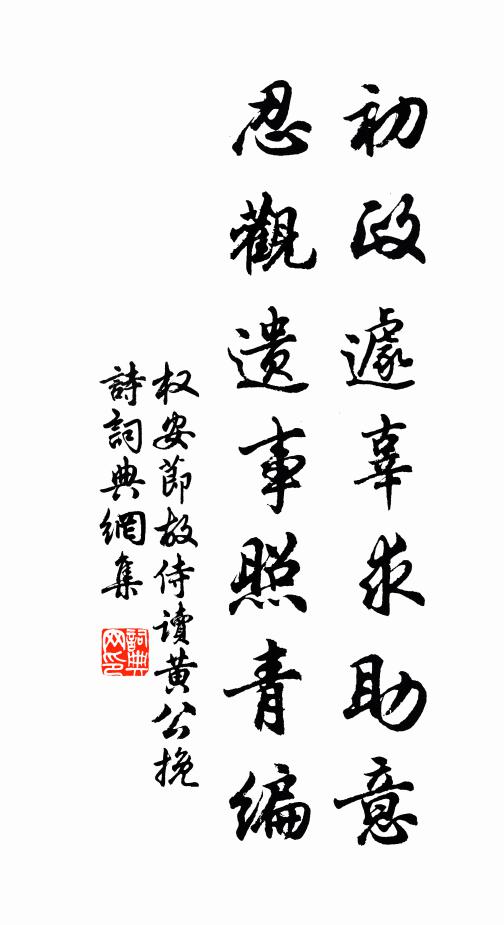 初政遽辜求助意
忍觀遺事照青編
权安節故侍讀黄公挽
詩詞典網集
詞典網印